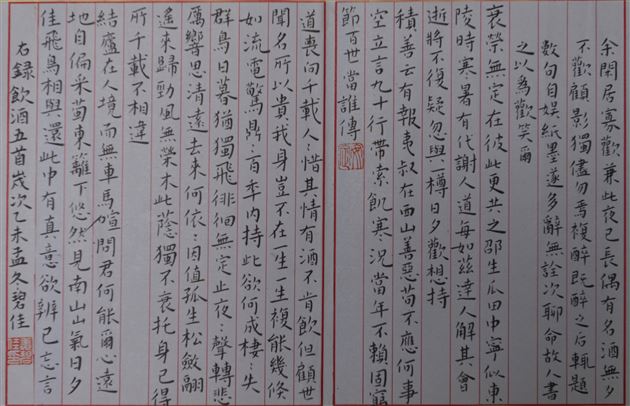 余閑居寡歡兼此夜已長偶有名酒無夕
不歡顧影獨儘勿焉複醉既醉之后輒題
數句自娛紙墨遂多辭無詮次聊命故人書
之以為歡笑爾
衰榮無定在彼此更共之邵生瓜田中寧似東
陵時寒暑有代謝人道每如茲達人解其會
逝將不復疑忽與一樽日夕歡想持
積善云有報夷叔在西山善惡苟不應何事
空立言九十行帶索飢寒況當年不賴固窮
節百世當誰傳
道喪向千載人:惜其情有酒不肯飲但顧世
聞名所以貴我身豈不在一生一生複能幾倏
如流電驚鼎:百年內持此欲何成棲:失
群鳥日暮猶獨飛徘徊無定止夜:聲轉悲
厲響思清遠去來何依:因值孤生松斂翮
遙來歸勁風無榮木此蔭獨不衰托身已得
所千載不相違
結廬在人境而無車馬喧問君何能爾心遠
地自偏采菊東籬下悠然見南山山氣日夕
佳飛鳥相與還此中有真意欲辨已忘言
右錄飲酒五首歲次乙未孟冬碧佳